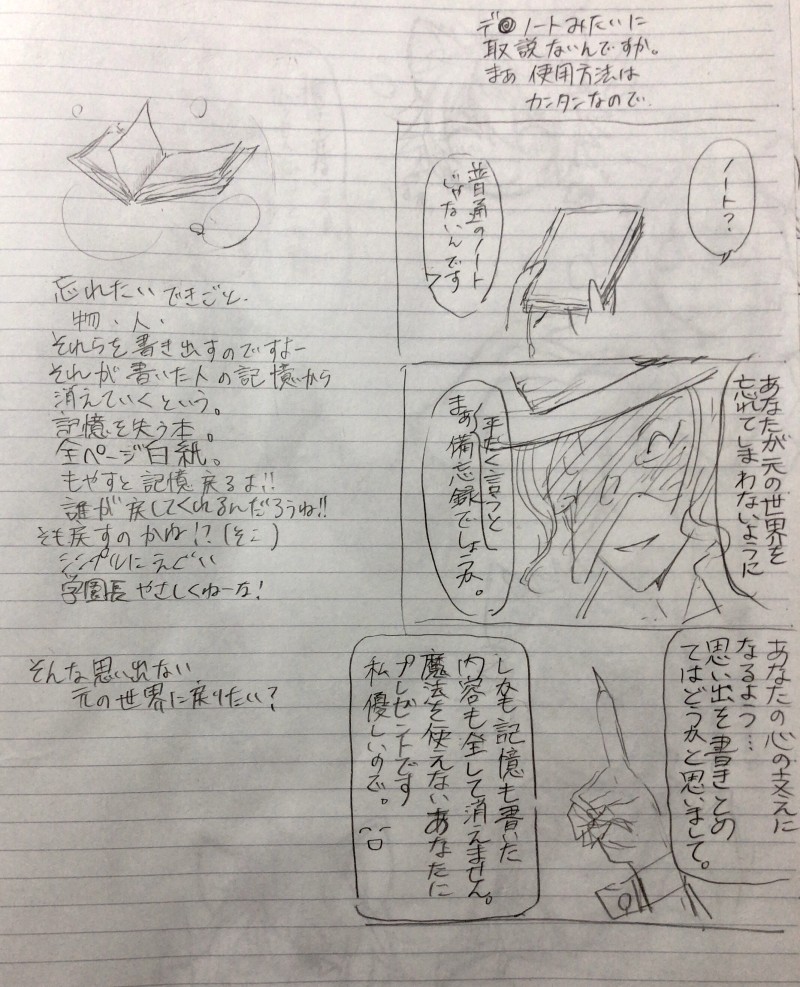 デ●ノートみたいに
取説ないんですか。
まぁ 使用方法は
カンタンなので
ノート?
普通のノート
じゃないんです
あなたが元の世界を
忘れてしまわないように
平たく言うとし
まぁ備忘録でしょうか。
あなたの心の支えに
なるよう…
思い出を書きとめ
てはどうかと思いまして。
しかも記憶も書いた
内容も全して消えません。
魔法を使えないあなたに
プレゼントです
私優しいので。
忘れたいできごと、
物、人、
それらを書き出すのですよー
それが書いた人の記憶から
消えていくという。
記憶を失う本。
全ページ白紙。
もやすと記憶戻るよ!!
誰が戻してくれるんだろうね!!
そも戻すのかね!?(そこ)
シンプルにえぐい
学園長やさしくねーな!
そんな思い出ない
元の世界に戻りたい?